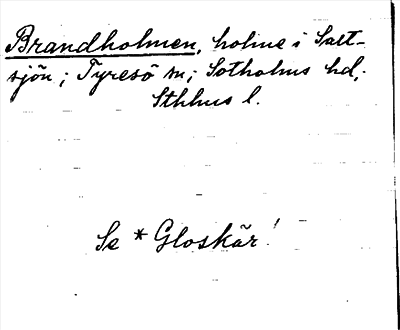 Brandholmen, holme i Salt-
sjön; Tyresö sn; Sotholms hd;
Sthlms l.
Se * Gloskär!